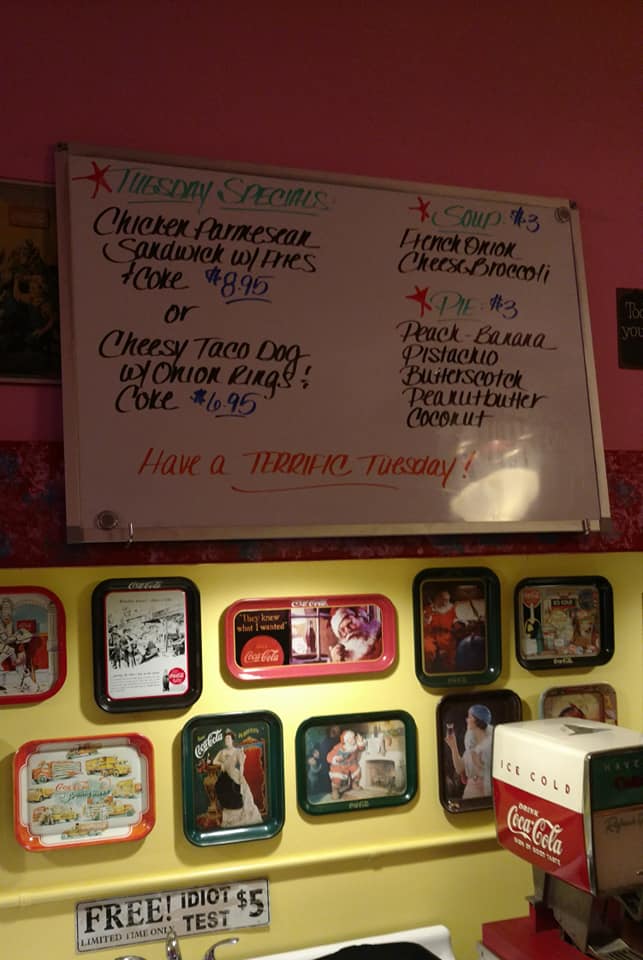 TUESDAY SPECIALS
Chicken Parmesean
Sandwich w/ Fries
+ Coke $8.95
or
Cheesy Taco Dog
w/ Onion Rings!
Coke $6.95
SOUP $3
French Onion
Cheese Broccoli
PIE: $3
Peach - Banana
Pistachio
Butterscotch
Peanutbutter
Coconut
Have a TERRIFIC Tuesday!
Coca-Cola
Coca-Cola
"They knew
what I wanted"
Coca-Cola
Coca-Cola
Coca-Cola
ICE COLD
DRINK
Coca-Cola
SIGN OF GOOD TASTE
FREE! IDIOT TEST $5
LIMITED TIME ONLY